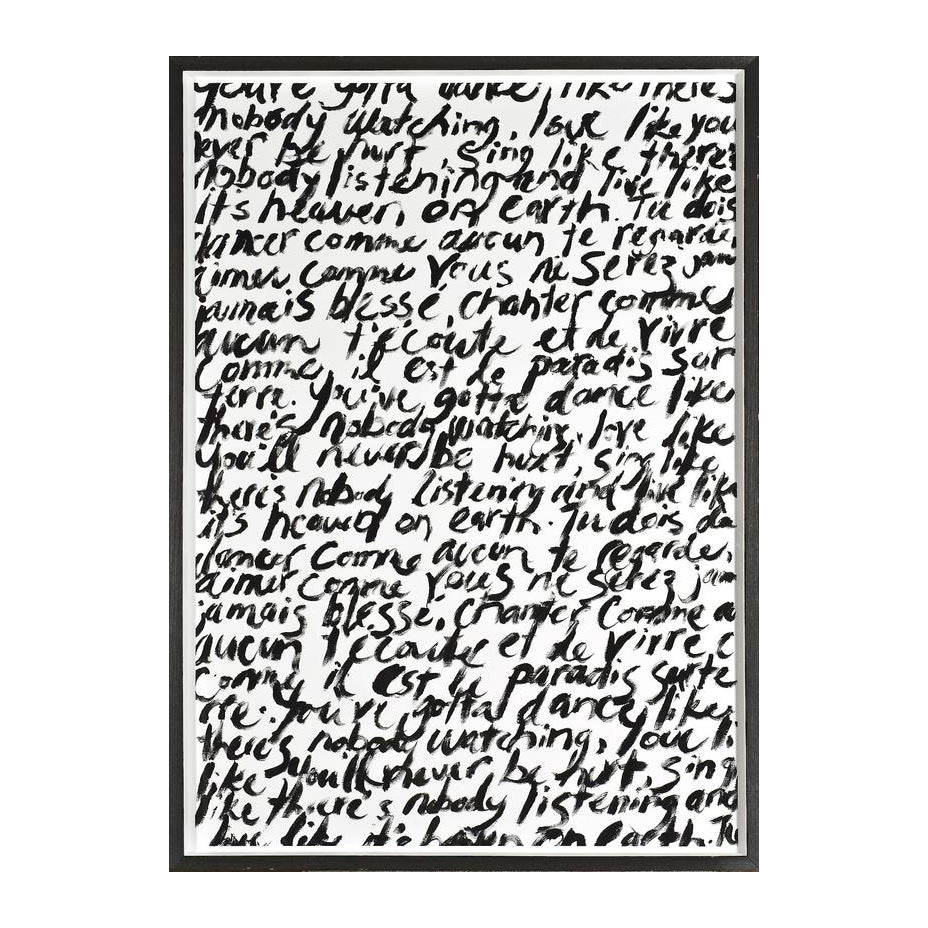 you're gotta dance, like there's
nobody watching, love like you
ever be hurt, sing like there's
nobody listening and live like
it's heaven on earth. Tu dois
dancer comme aucun te regarde,
aimer comme Vous ne serez jam
jamais blessé, chanter comme
aucun t'écoute et de vivre
comme il est de paradis sur
terre. You've gotta dance like
there's nobody watching, love like
you'll never be hurt, sing like
there's nobody listening and live like
it's heaven on earth. Tu dois da
dancer comme aucun te regarde,
aimer comme Vous ne serez jam
jamais blessé, chanter comme a
aucun t'écoute et de vivre c
comme il est le paradis sur te
rre. You've gotta dance like
there's nobody watching, love li
like you'll never be hurt, sing
like there's nobody listening and
live like it's heaven on earth. Tu